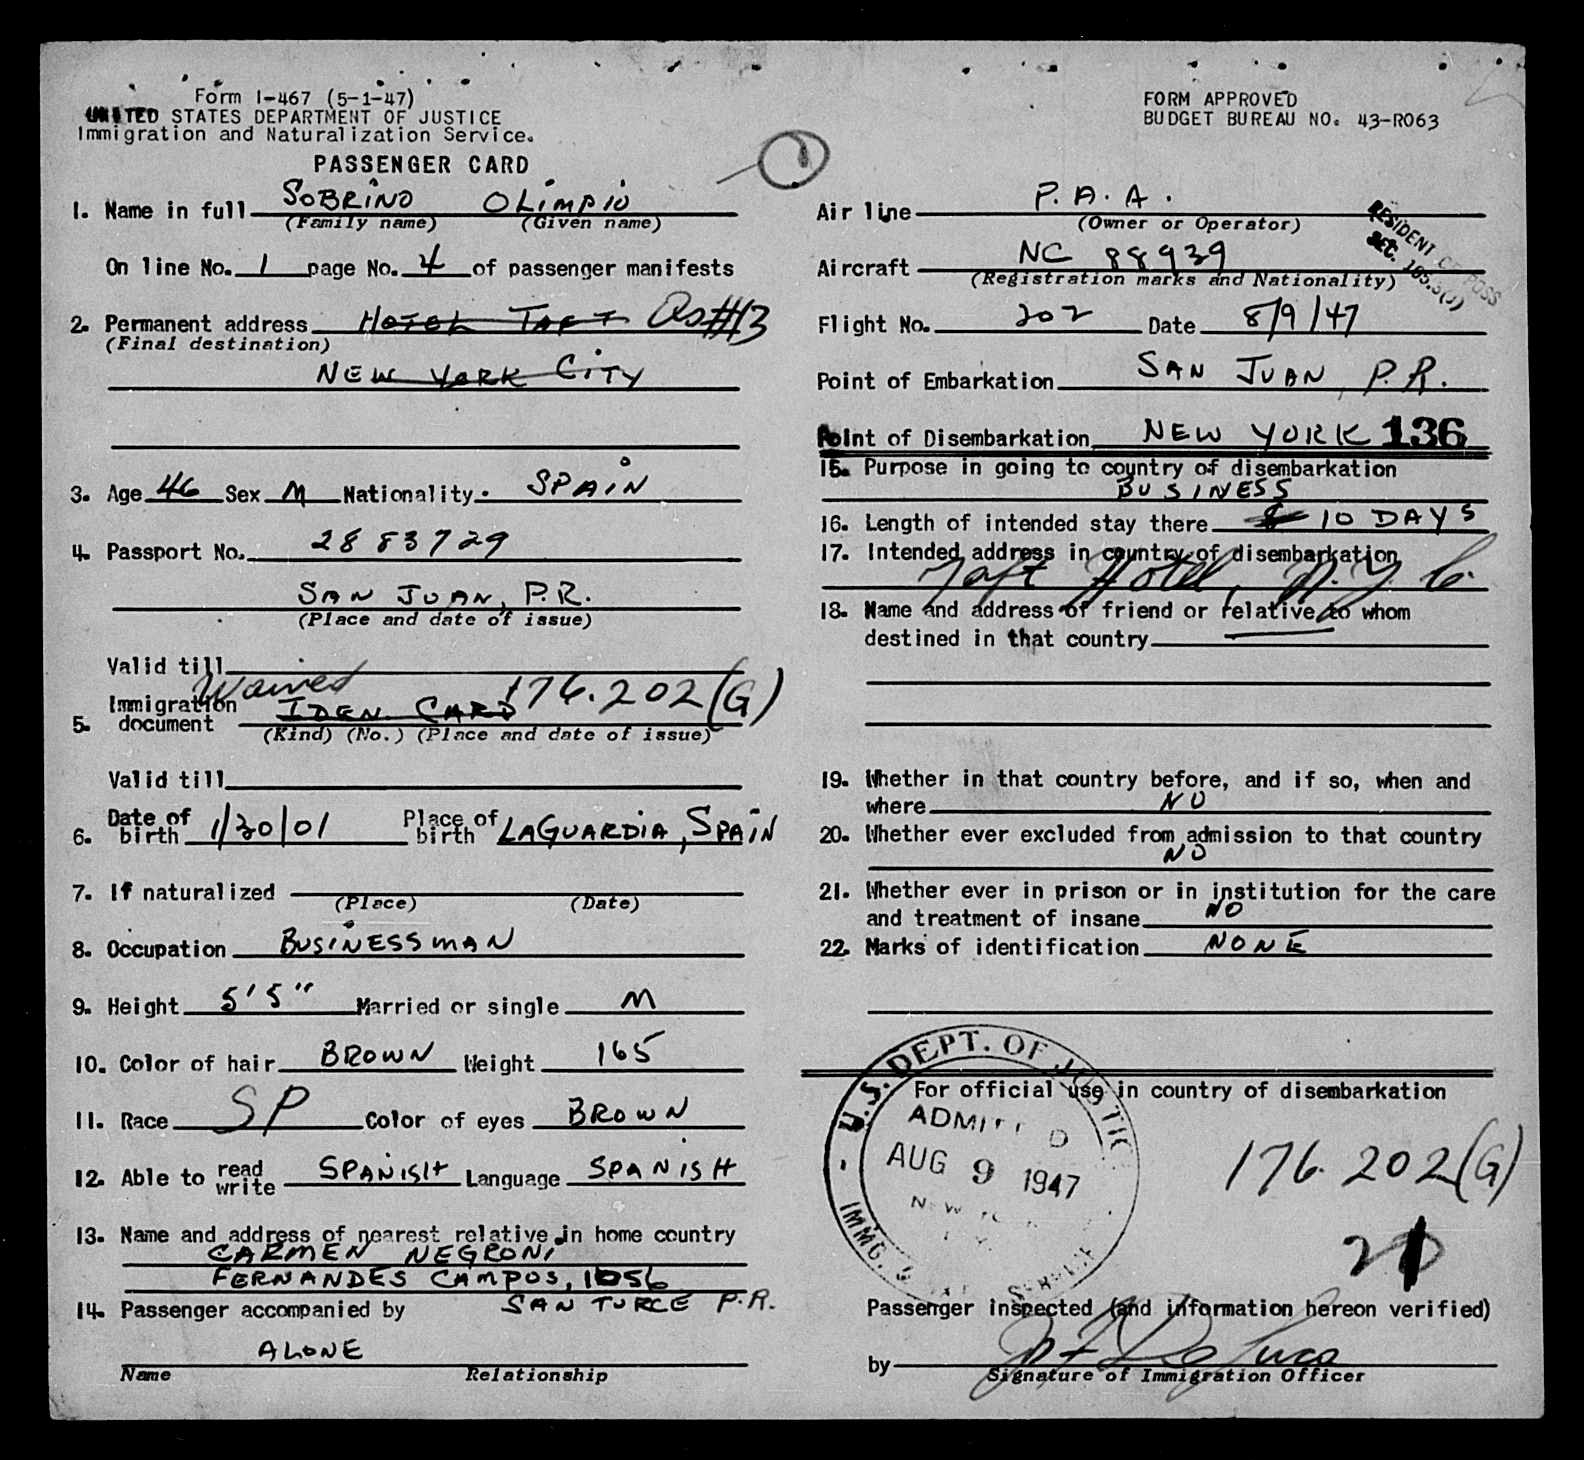 Form I-467 (5-1-47)
UNITED STATES DEPARTMENT OF JUSTICE
Immigration and Naturalization Service.
PASSENGER CARD
1. Name in full SOBRINO OLIMPIO
(Family name) (Given name)
On line No. 1 page No. 4 of passenger manifests
2. Permanent address HOTEL TAFT As#13
(Final destination)
NEW YORK CITY
3. Age 46 Sex M Nationality. SPAIN
4. Passport No. 2883729
SAN JUAN, P.R.
(Place and date of issue)
Valid till
Waived
5. Immigration document IDEN. CARD 176.202(G)
(Kind) (No.) (Place and date of issue)
Valid till
6. Date of birth 1/30/01 Place of birth LAGUARDIA, SPAIN
7. If naturalized
(Place) (Date)
8. Occupation BUSINESSMAN
9. Height 5'5" Married or single M
10. Color of hair BROWN Weight 165
11. Race SP Color of eyes BROWN
12. Able to read write SPANISH Language SPANISH
13. Name and address of nearest relative in home country
CARMEN NEGRONI
FERNANDES CAMPOS, 1056
SAN TURCE P.R.
14. Passenger accompanied by
ALONE
Name Relationship
FORM APPROVED
BUDGET BUREAU NO. 43-R063
Air line P.A.A.
(Owner or Operator)
RESIDENT OF POSS
SEC. 165.3(J)
Aircraft NC 88939
(Registration marks and Nationality)
Flight No. 202 Date 8/9/47
Point of Embarkation SAN JUAN, P.R.
Point of Disembarkation NEW YORK 136
15. Purpose in going to country of disembarkation
BUSINESS
16. Length of intended stay there 10 DAYS
17. Intended address in country of disembarkation
Taft Hotel, N.Y.C.
18. Name and address of friend or relative to whom
destined in that country
19. Whether in that country before, and if so, when and
where NO
20. Whether ever excluded from admission to that country
NO
21. Whether ever in prison or in institution for the care
and treatment of insane NO
22. Marks of identification NONE
For official use in country of disembarkation
U.S. DEPT. OF JUSTIC
ADMITTED
AUG 9 1947
NEW YORK
IMMG. SERVICE
176.202(G)
Passenger inspected (and information hereon verified)
by
Signature of Immigration Officer